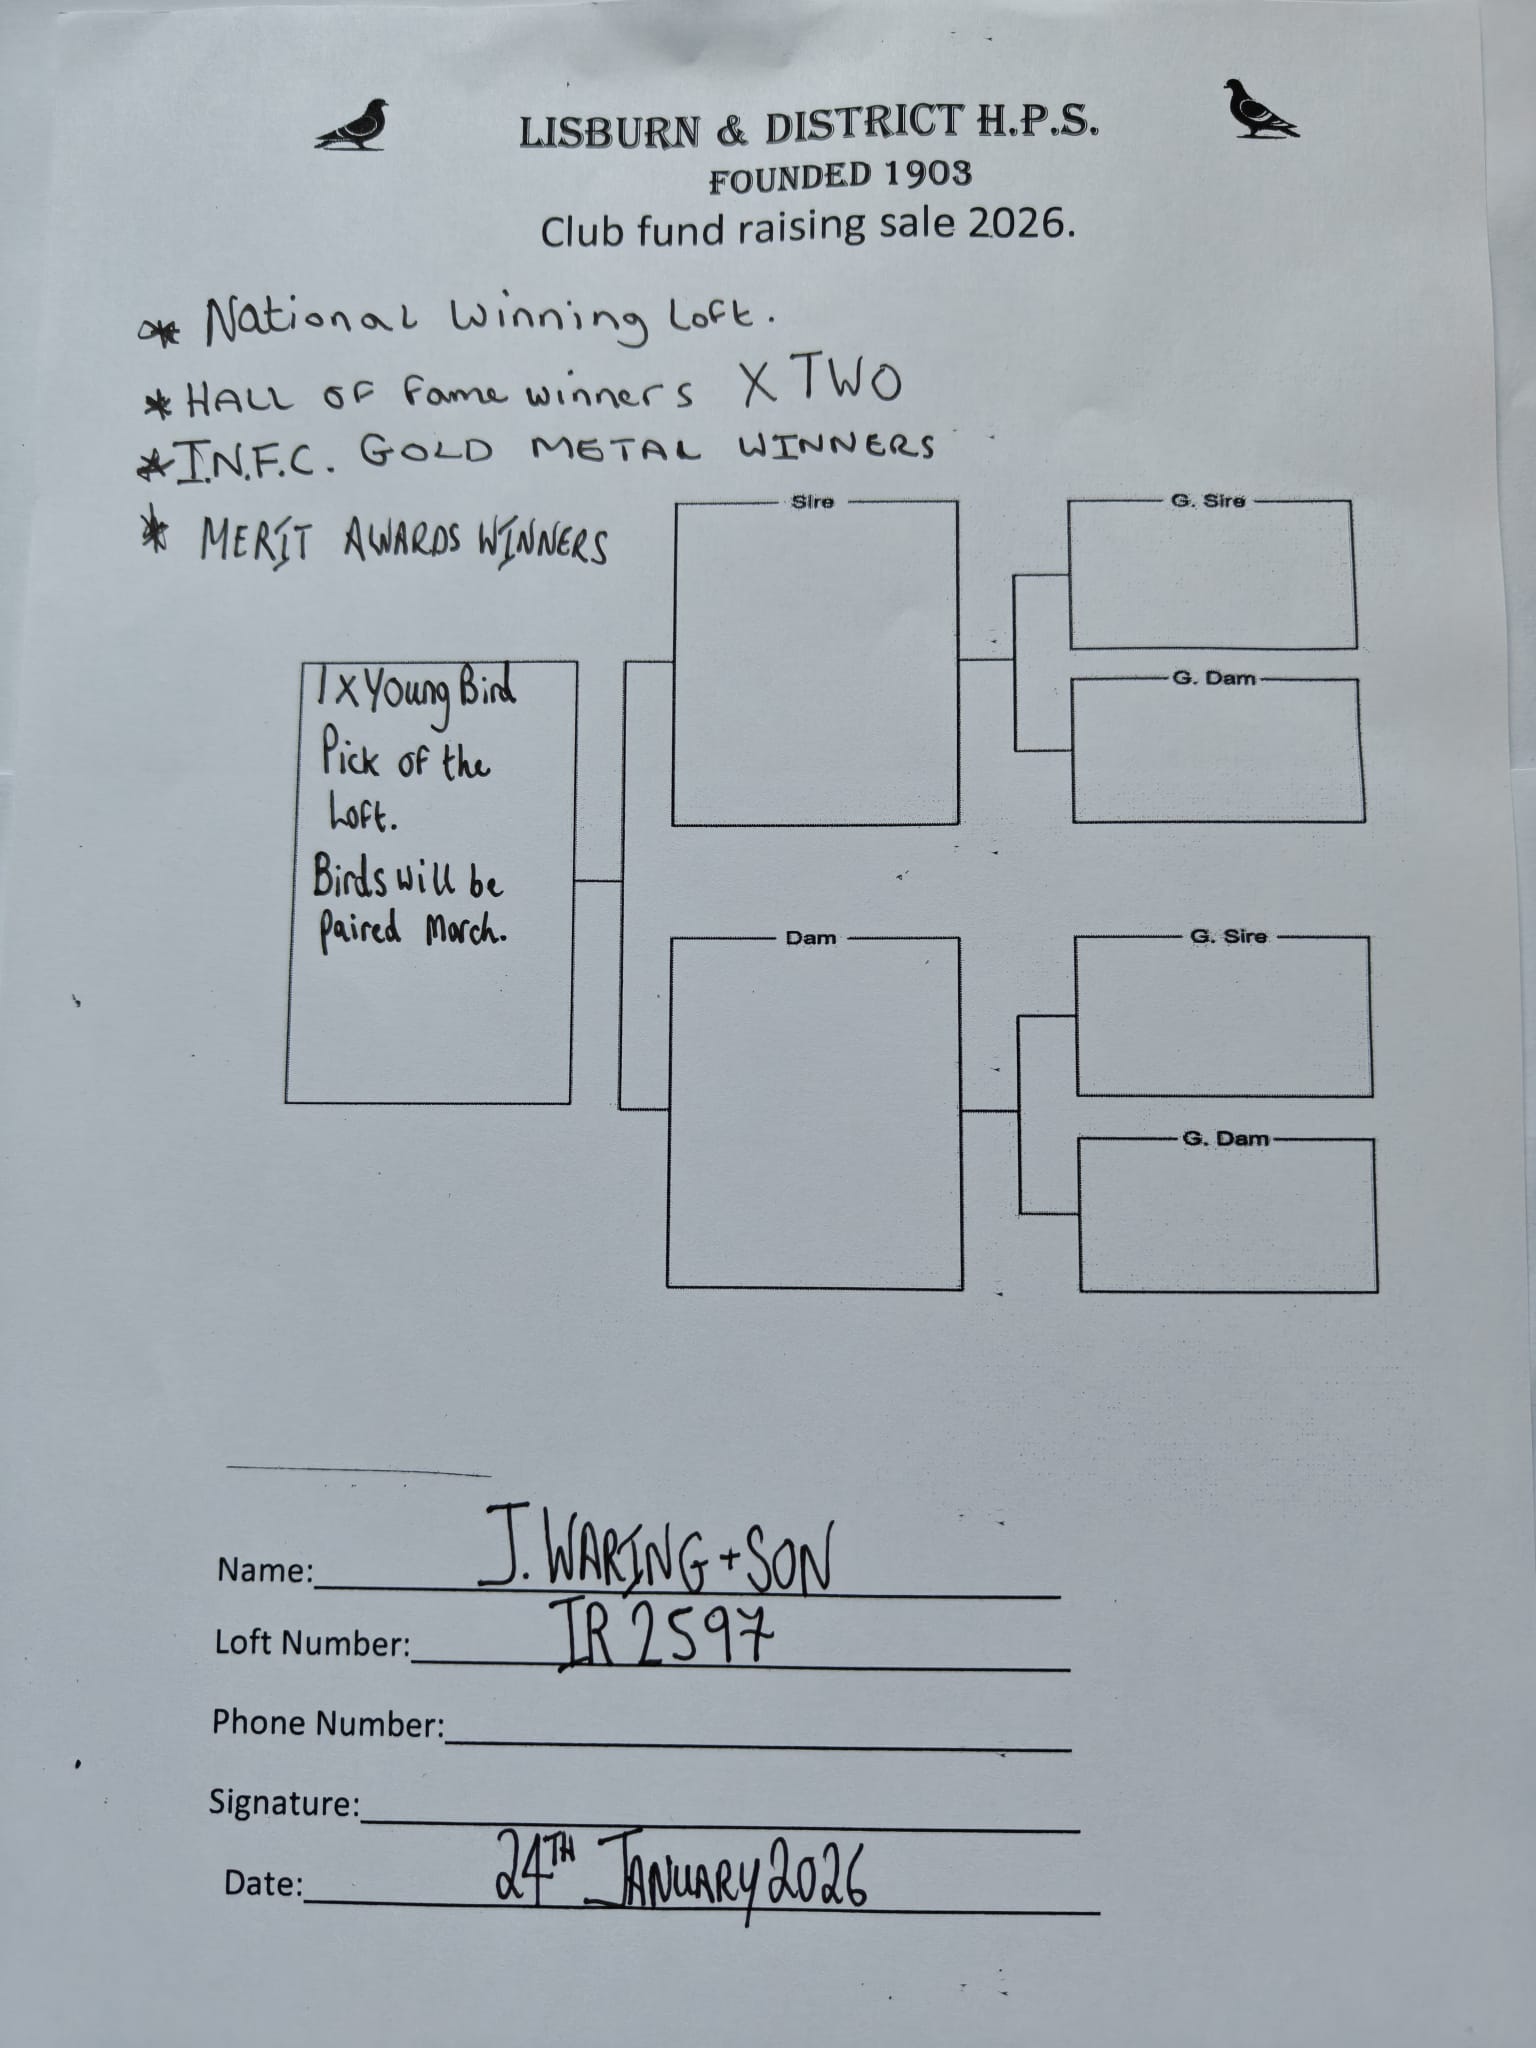 LISBURN & DISTRICT H.P.S.
FOUNDED 1903
Club fund raising sale 2026.
* National Winning Loft.
* HALL OF Fame winners X TWO
* I.N.F.C. GOLD METAL WINNERS
* MERIT AWARDS WINNERS
Sire
G. Sire
G. Dam
1 x Young Bird
Pick of the
Loft.
Birds will be
Paired March.
Dam
G. Sire
G. Dam
Name: J. WARING + SON
Loft Number: IR 2597
Phone Number:
Signature:
Date: 24TH JANUARY 2026